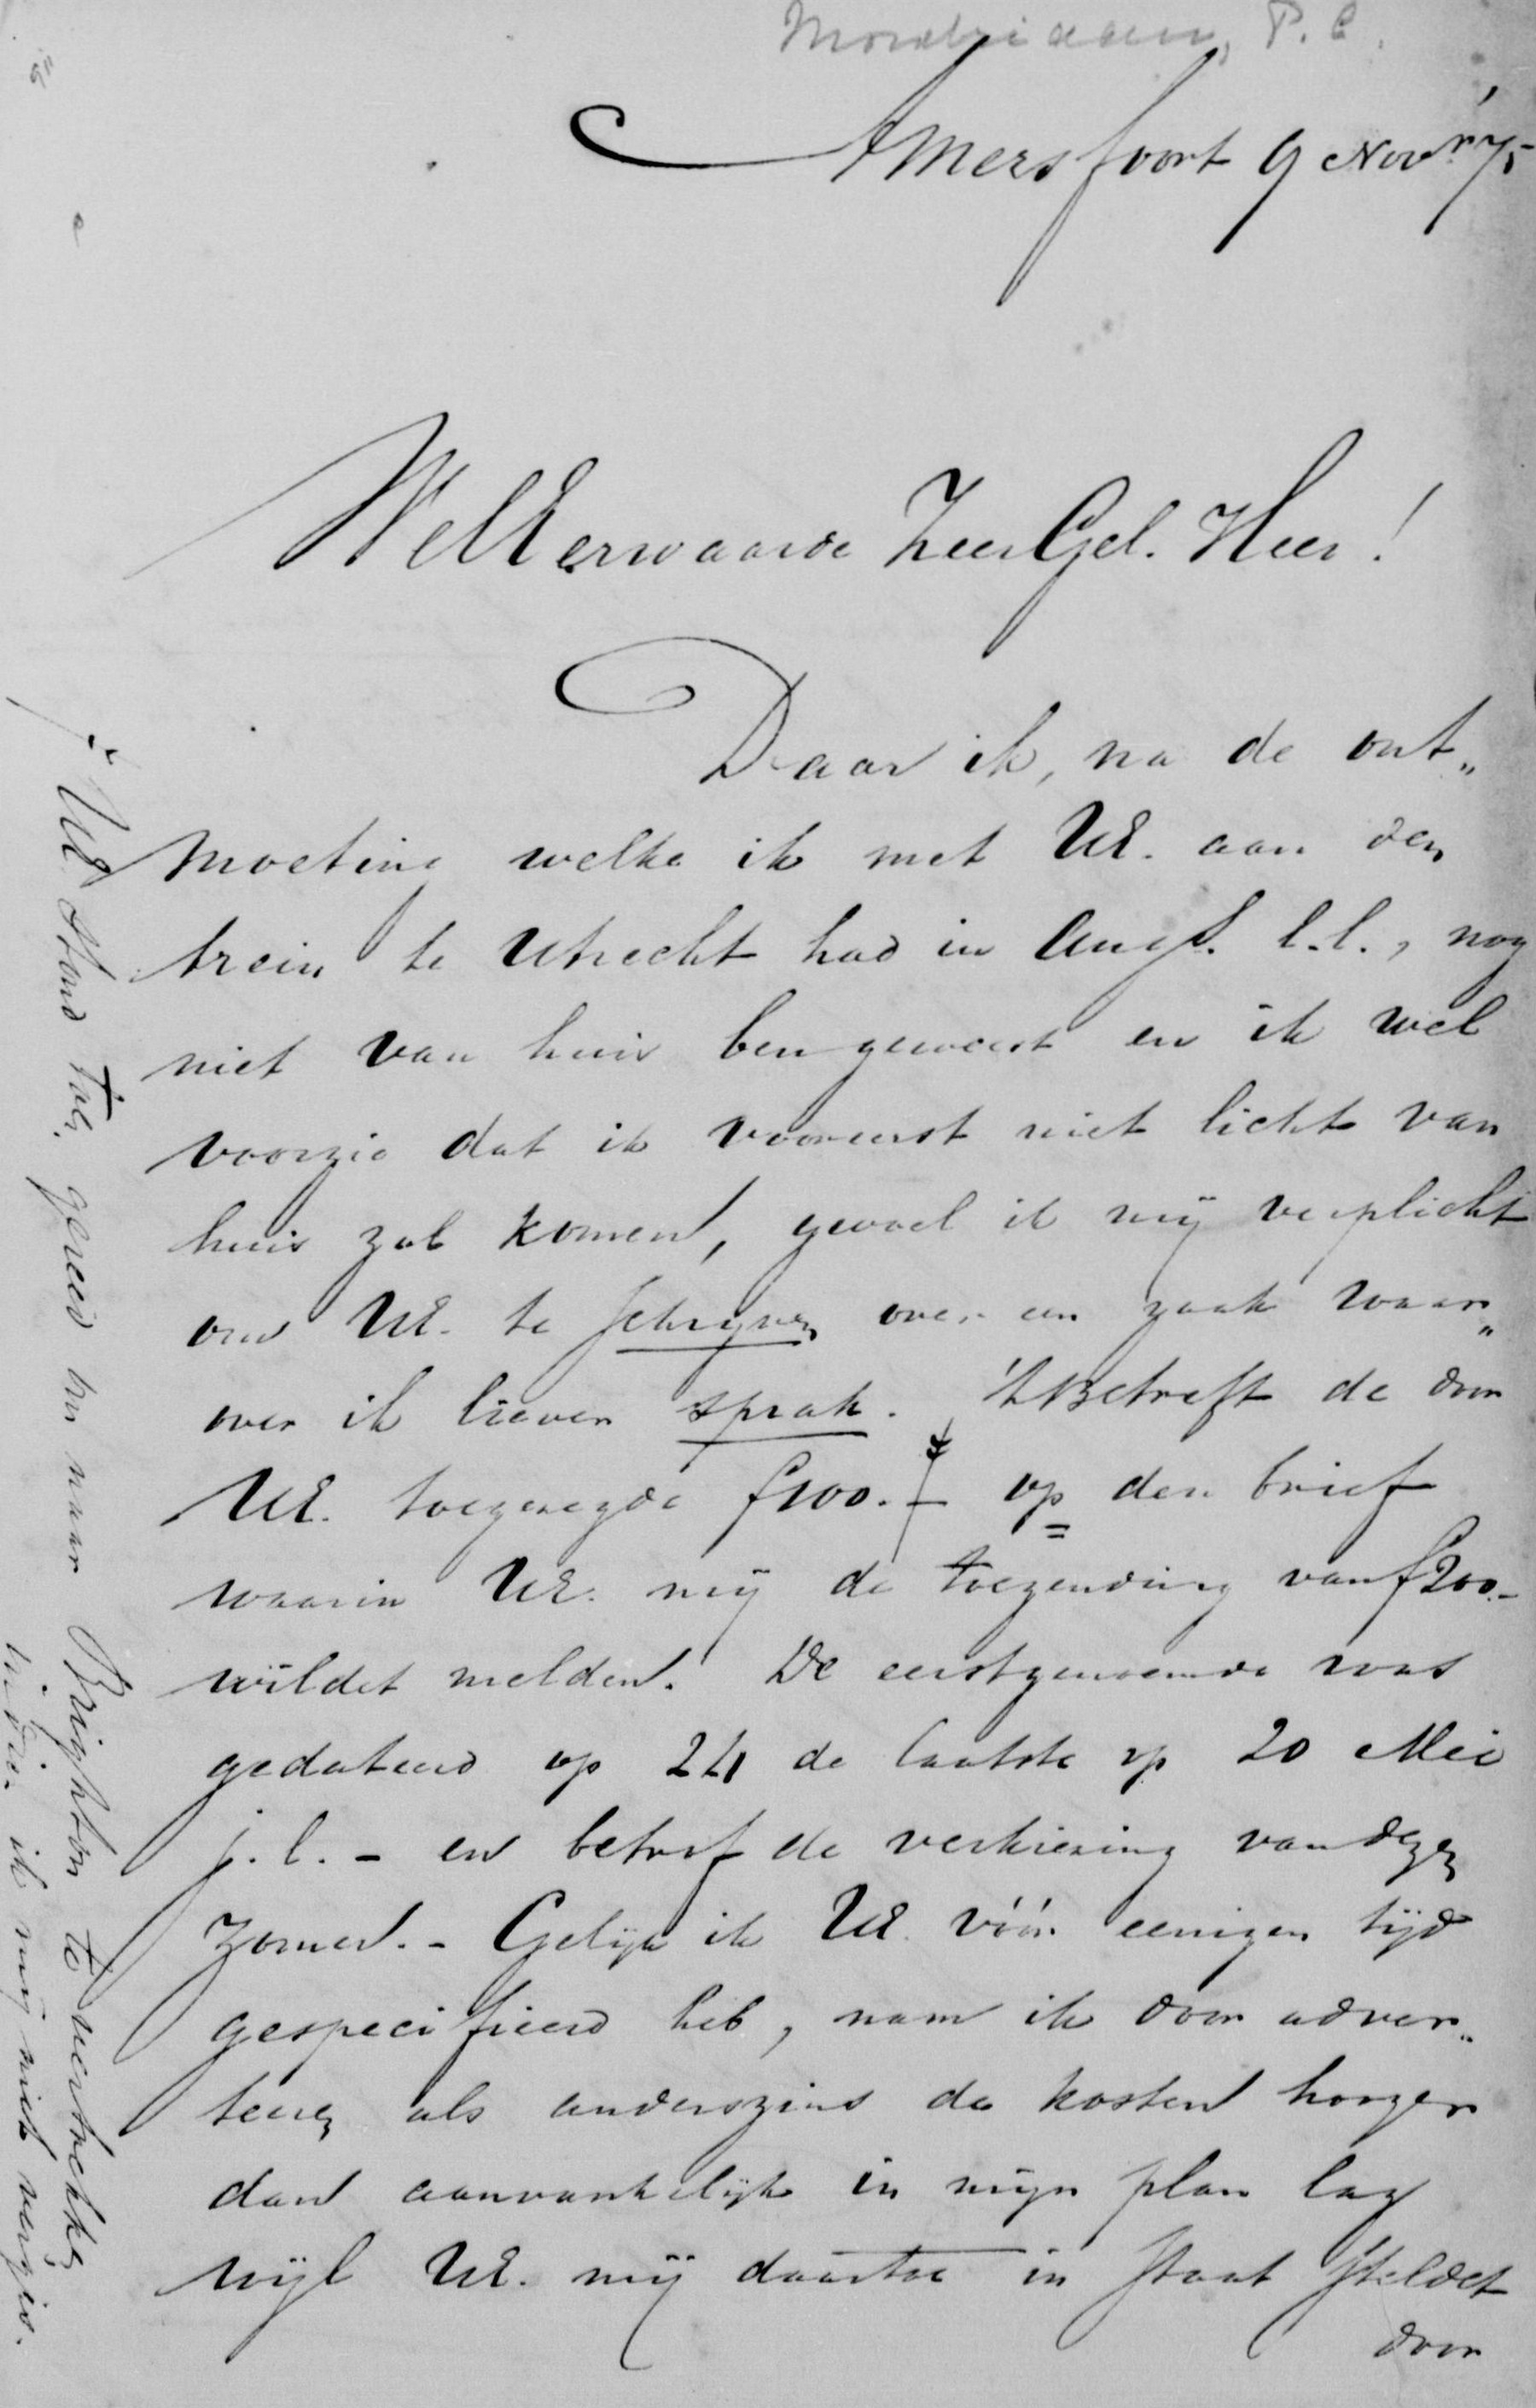 Mondriaan, P. C.
Amersfoort 9 Novr. '75
WelEerwaarde ZeerGel. Heer!
Daar ik, na de ont„
moeting welke ik met UE. aan den
trein te Utrecht had in Augt. l.l., nog
niet van huis ben geweest en ik wel
voorzie dat ik vooreerst niet licht van
huis zal komen, gevoel ik mij verplicht
om UE. te schrijven over een zaak waar„
over ik liever sprak. 't Betreft de door
UE. toegezegde f100.- op den brief
waarin UE. mij de toezending van f200.-
wildet melden. De eerstgenoemde was
gedateerd op 24 de laatste op 20 Mei
j.l. - en betrof de verkiezing van dezen
zomer. - Gelijk ik UE. vóór eenigen tijd
gespecifieerd heb, nam ik door adver„
teeren als anderszins de kosten hooger
dan aanvankelijk in mijn plan lag
wijl UE. mij daartoe in staat steldet
door
UE stond toen gereed om naar Brighton te vertrekken
indien ik mij niet vergis.